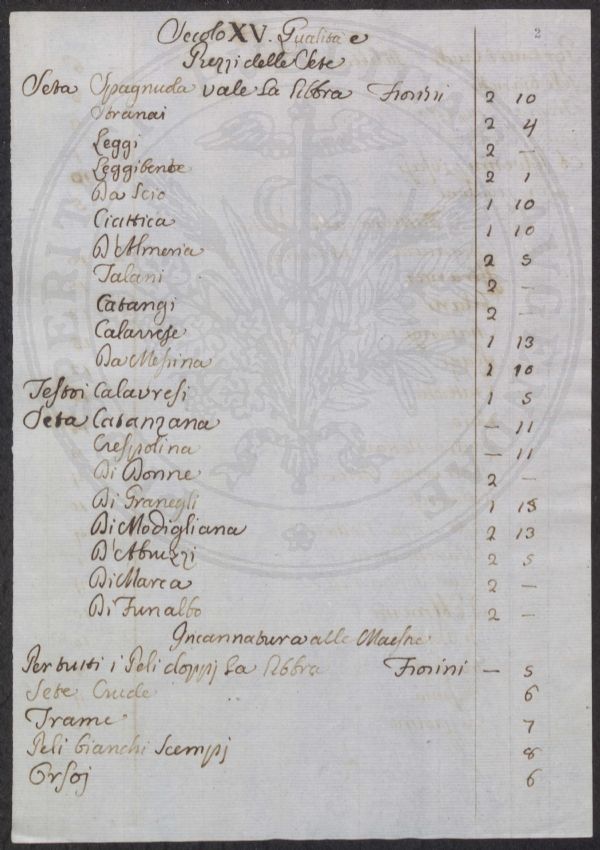 2
Secolo XV. Qualità e
Prezzi delle Sete
Seta Spagnuola vale la libbra Fiorini 2 10
Stranai 2 4
Leggi 2 —
Leggibente 2 1
Da Scio 1 10
Ciattica 1 10
D'Almeria 2 5
Talani 2 —
Catangi 2 —
Calavrese 1 13
Da Messina 1 10
Testoi Calavresi 1 5
Seta Catanzana — 11
Crespolina — 11
Di Donne 2 —
Di Granegli 1 15
Di Modigliana 2 13
D'Abruzzi 2 5
Di Marca 2 —
Di Funalbo 2 —
Incannatura alle Maestre
Per tutti i Peli doppj la libbra Fiorini — 5
Sete Crude 6
Trame 7
Peli bianchi Scempj 8
Orsoj 6